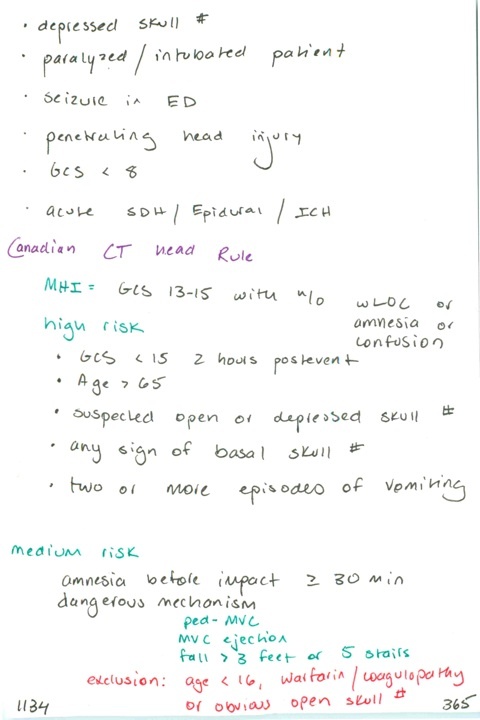 • depressed skull #
• paralyzed / intubated patient
• seizure in ED
• penetrating head injury
• GCS < 8
• acute SDH / Epidural / ICH
Canadian CT head Rule
MHI = GCS 13-15 with w/o wLOC or
amnesia or
confusion
high risk
• GCS < 15 2 hours postevent
• Age > 65
• suspected open or depressed skull #
• any sign of basal skull #
• two or more episodes of vomiting
medium risk
amnesia before impact ≥ 30 min
dangerous mechanism
ped-MVC
MVC ejection
fall > 3 feet or 5 stairs
exclusion: age < 16, warfarin / coagulopathy
or obvious open skull #
1134
365